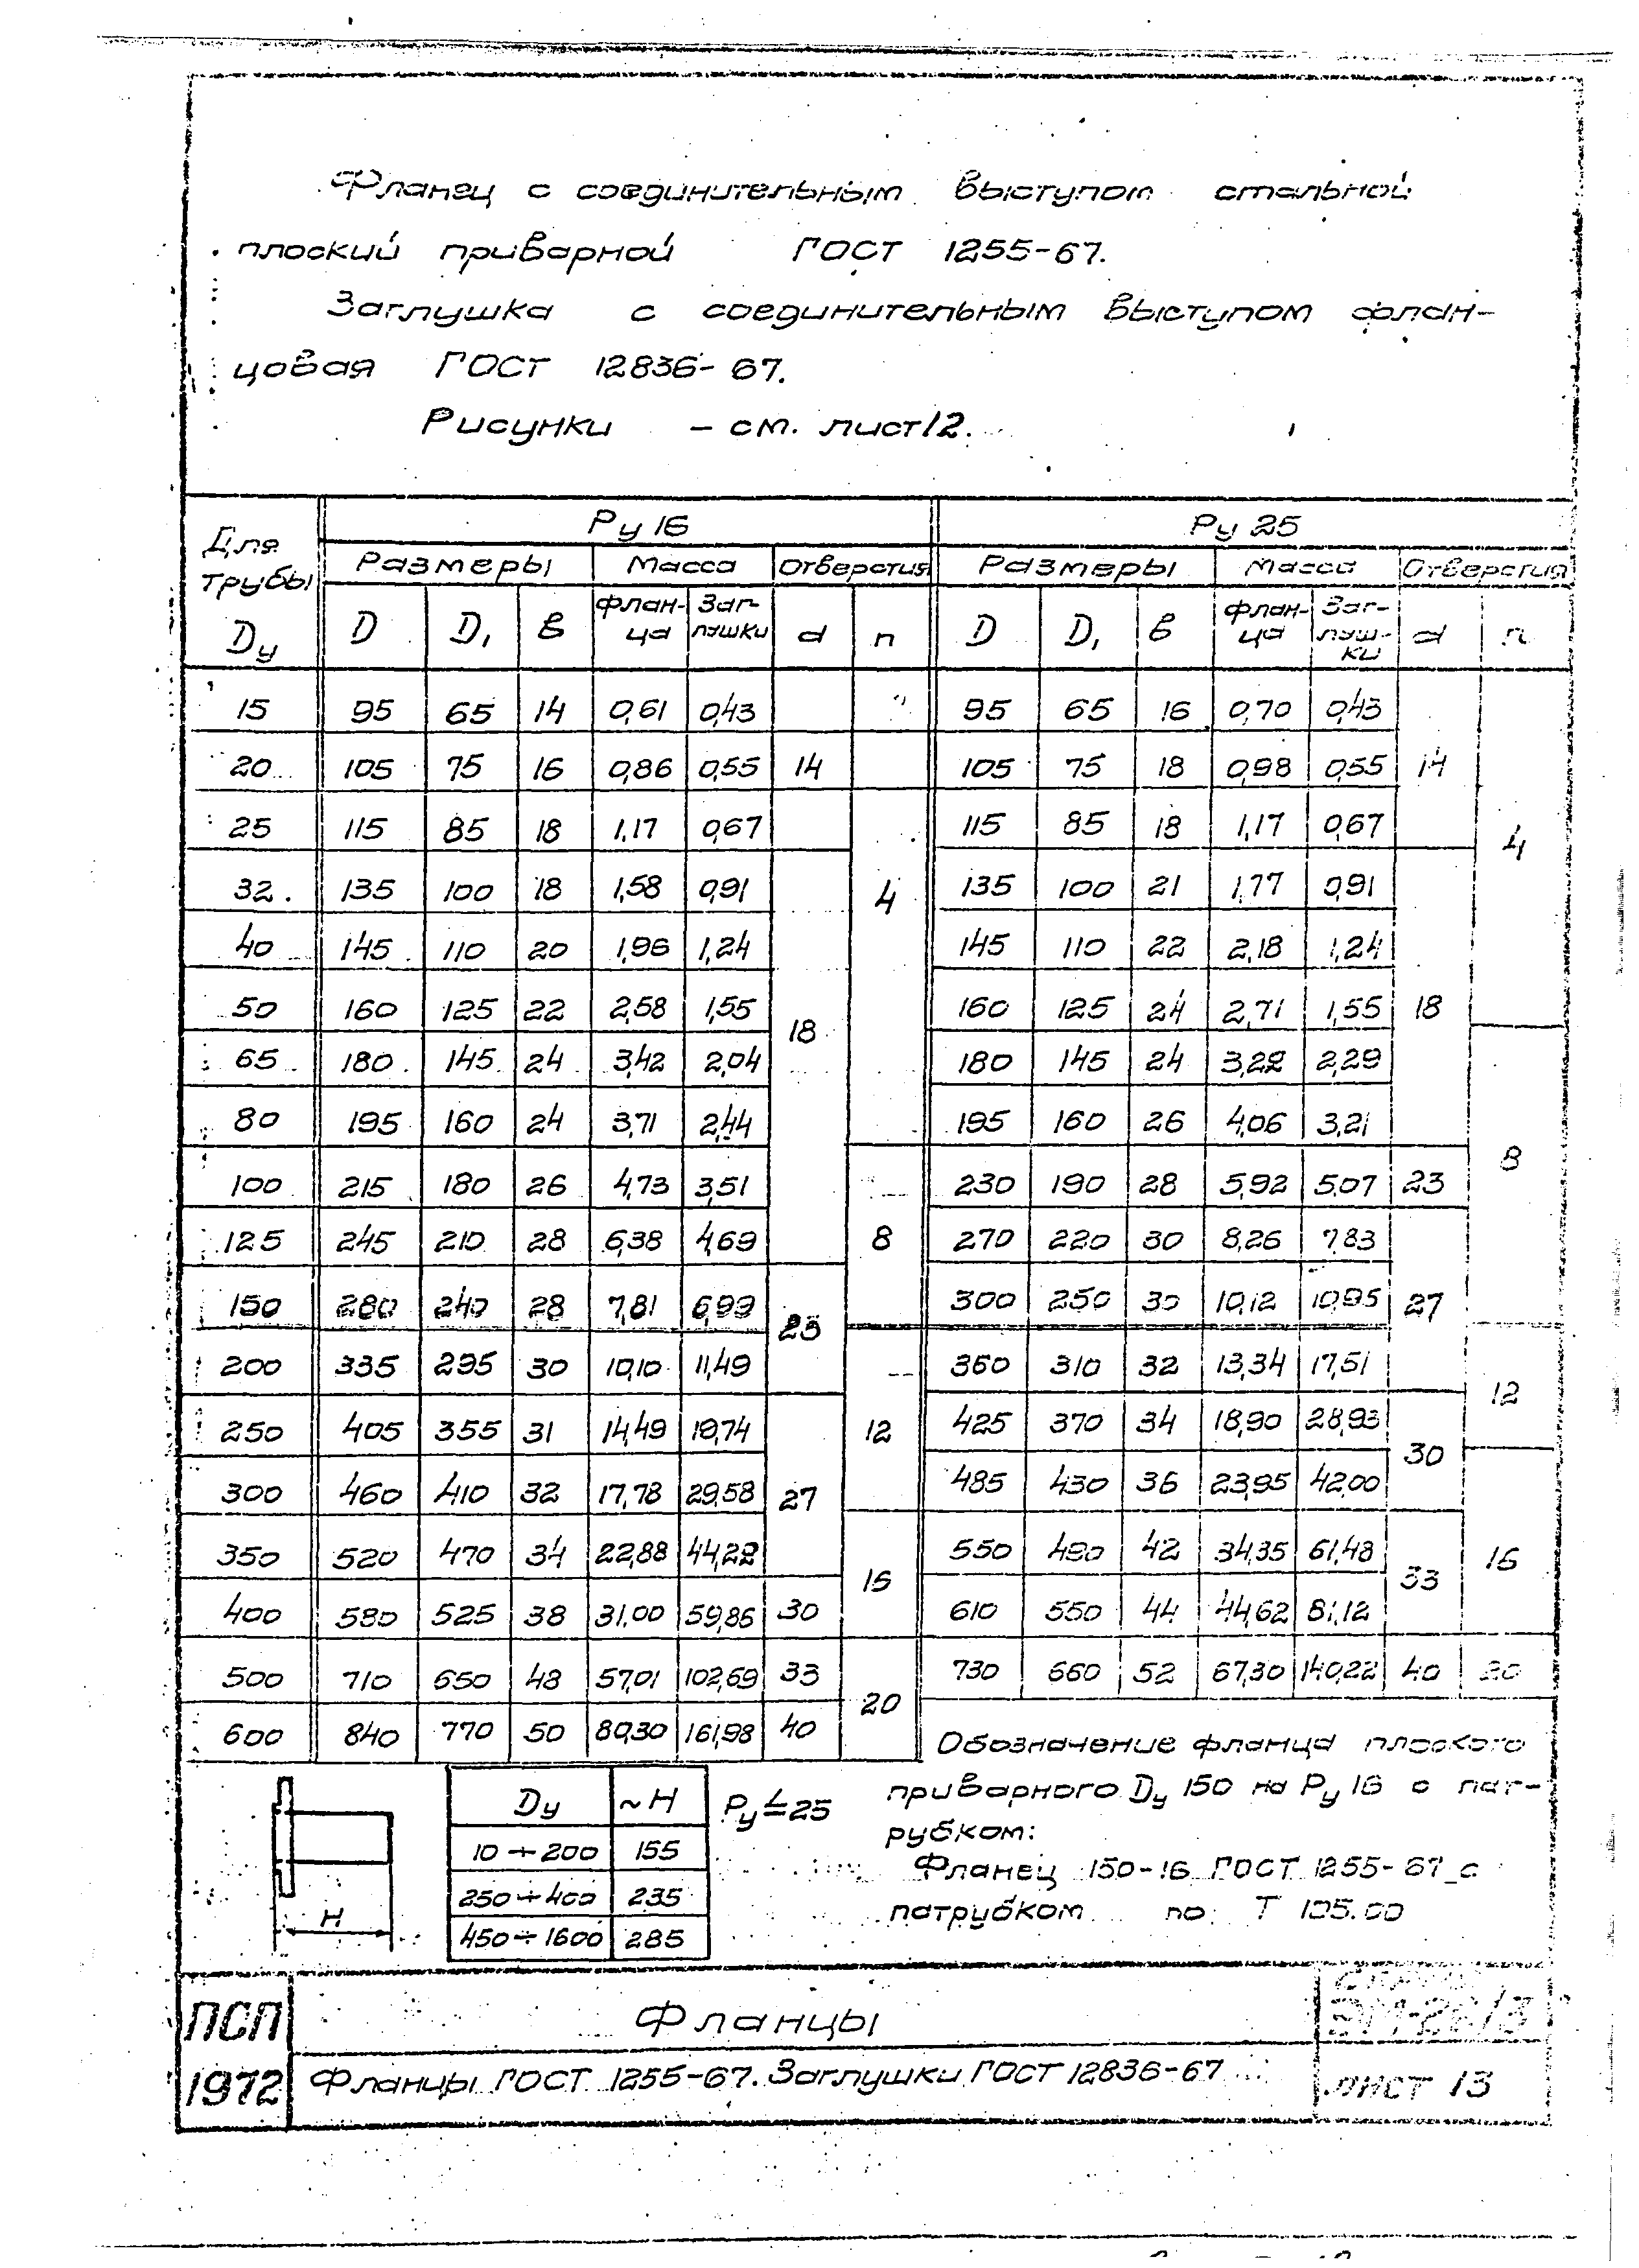 Фланец с соединительным выступом стальной
плоский приварной ГОСТ 1255-67.
Заглушка с соединительным выступом флан-
цовая ГОСТ 12836-67.
Рисунки - см. лист 12.
Для трубы Dу Ру 16 Ру 25
Размеры Масса Отверстия Размеры Масса Отверстия
D D₁ в флан-ца Заг-лушки d n D D₁ в флан-ца Заг-луш-ки d n
15 95 65 14 0,61 0,43 95 65 16 0,70 0,43
20 105 75 16 0,86 0,55 14 105 75 18 0,98 0,55 14
25 115 85 18 1,17 0,67 115 85 18 1,17 0,67 4
32 135 100 18 1,58 0,91 4 135 100 21 1,77 0,91
40 145 110 20 1,96 1,24 145 110 22 2,18 1,24
50 160 125 22 2,58 1,55 18 160 125 24 2,71 1,55 18
65 180 145 24 3,42 2,04 180 145 24 3,22 2,29
80 195 160 24 3,71 2,44 195 160 26 4,06 3,21
100 215 180 26 4,73 3,51 230 190 28 5,92 5,07 23 8
125 245 210 28 6,38 4,69 8 270 220 30 8,26 7,83
150 280 240 28 7,81 6,99 23 300 250 30 10,12 10,95 27
200 335 295 30 10,10 11,49 360 310 32 13,34 17,51 12
250 405 355 31 14,49 19,74 12 425 370 34 18,90 28,93 30
300 460 410 32 17,78 29,58 27 485 430 36 23,95 42,00
350 520 470 34 22,88 44,22 16 550 490 42 34,35 61,48 33 16
400 580 525 38 31,00 59,86 30 610 550 44 44,62 81,12
500 710 650 48 57,01 102,69 33 20 730 660 52 67,30 140,22 40 20
600 840 770 50 80,30 161,98 40
Обозначение фланца плоского
приварного Dу 150 на Ру 16 с пат-
рубком:
Фланец 150-16 ГОСТ 1255-67 с
патрубком по Т 105.00
Н
Dу ~Н Ру≤25
10÷200 155
250÷400 235
450÷1600 285
ПСП Фланцы
1972 Фланцы ГОСТ 1255-67. Заглушки ГОСТ 12836-67 лист 13